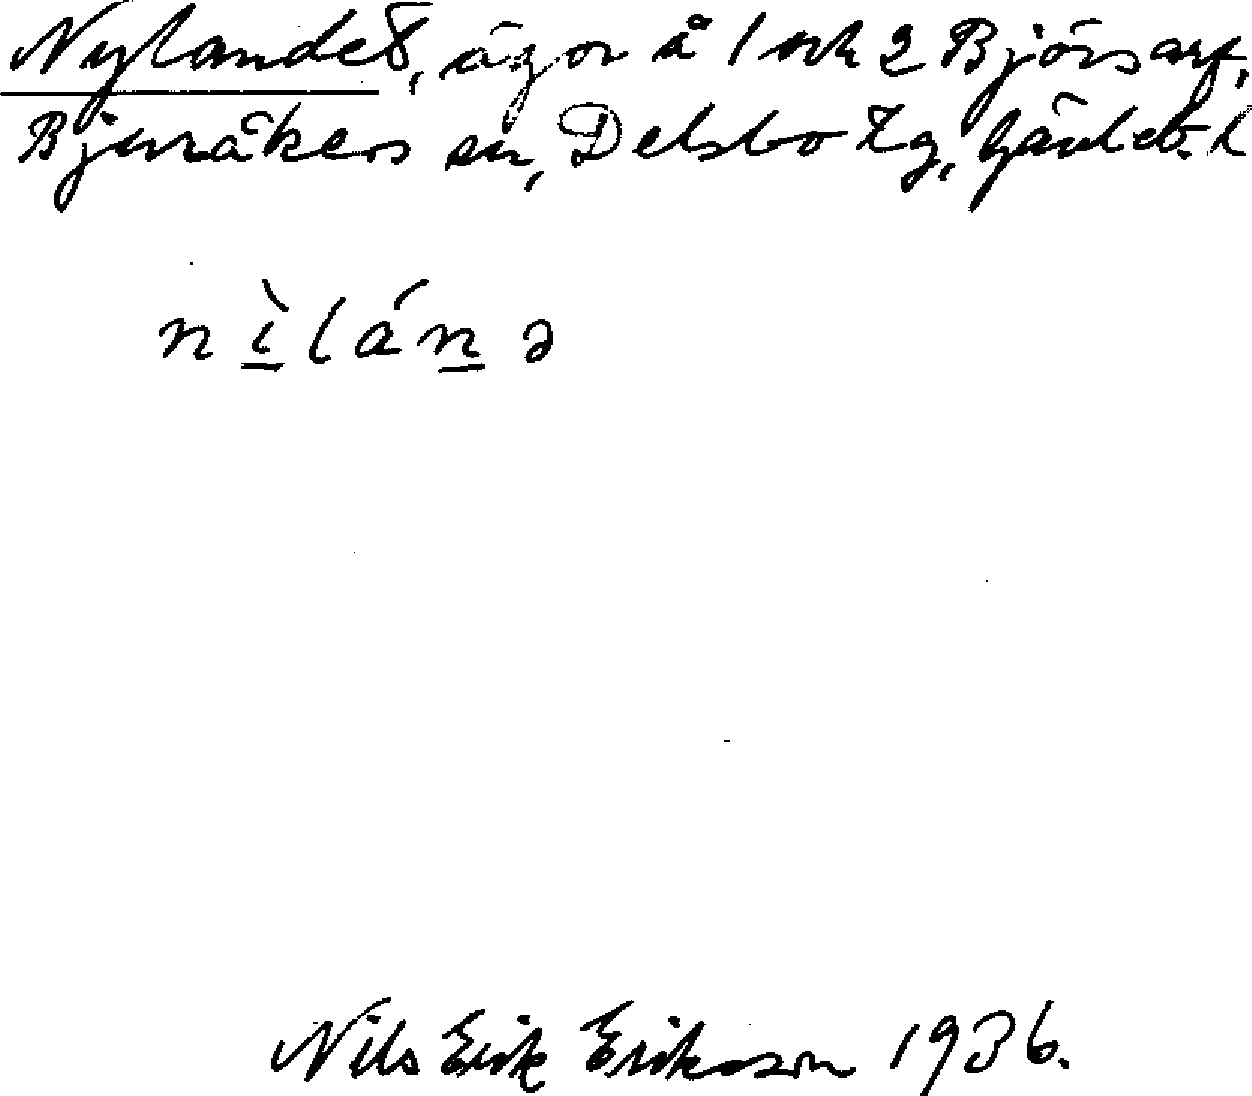 Nylandet, ägor å 1 och 2 Björsarf,
Bjuråkers sn, Delsbo tg, Gävleb. l
nìlánə
Nils Erik Eriksson 1936.